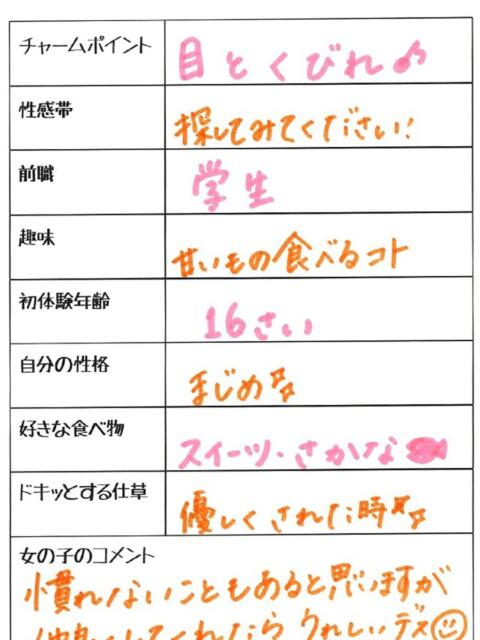 チャームポイント 目とくびれ♪
性感帯 探してみてください!
前職 学生
趣味 甘いもの食べるコト
初体験年齢 16さい
自分の性格 まじめ
好きな食べ物 スイーツ・さかな
ドキッとする仕草 優しくされた時
女の子のコメント
慣れないこともあると思いますが
してくれたら うれしいデス